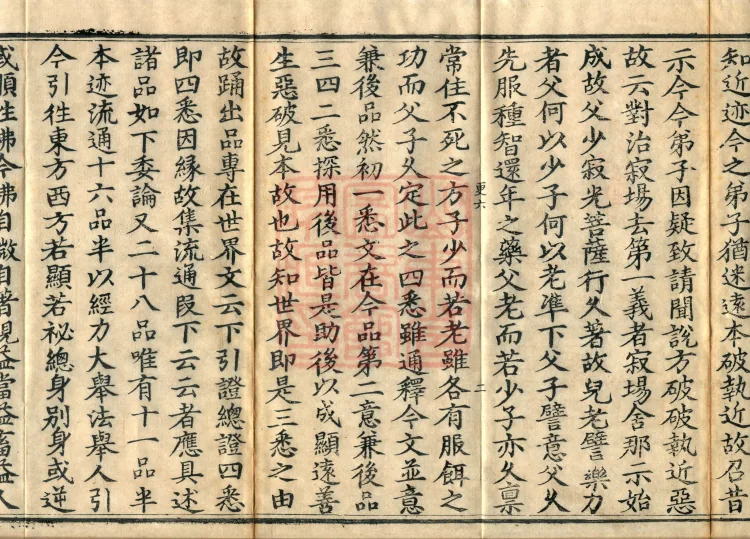 知近迹今之弟子猶迷遠本破執近故召昔
示今今弟子因疑致請聞說方破破執近惡
故云對治寂場去第一義者寂場舍那示始
成故父少寂光菩薩行久著故兒老譬樂力
者父何以少子何以老準下父子譬意父久
先服種智還年之藥父老而若少子亦久稟
更六
二
常住不死之方子少而若老雖各有服餌之
功而父子久定此之四悉雖通釋今文並意
兼後品然初一悉文在今品第二意兼後品
三四二悉探用後品皆是助後以成顯遠善
生惡破見本故也故知世界即是三悉之由
故踊出品專在世界文云下引證總證四悉
即四悉因緣故集流通段下云云者應具述
諸品如下委論又二十八品唯有十一品半
本迹流通十六品半以經力大舉法舉人引
今引往東方西方若顯若祕總身別身或逆
或順生佛今佛自敘自著現益當益畜益人